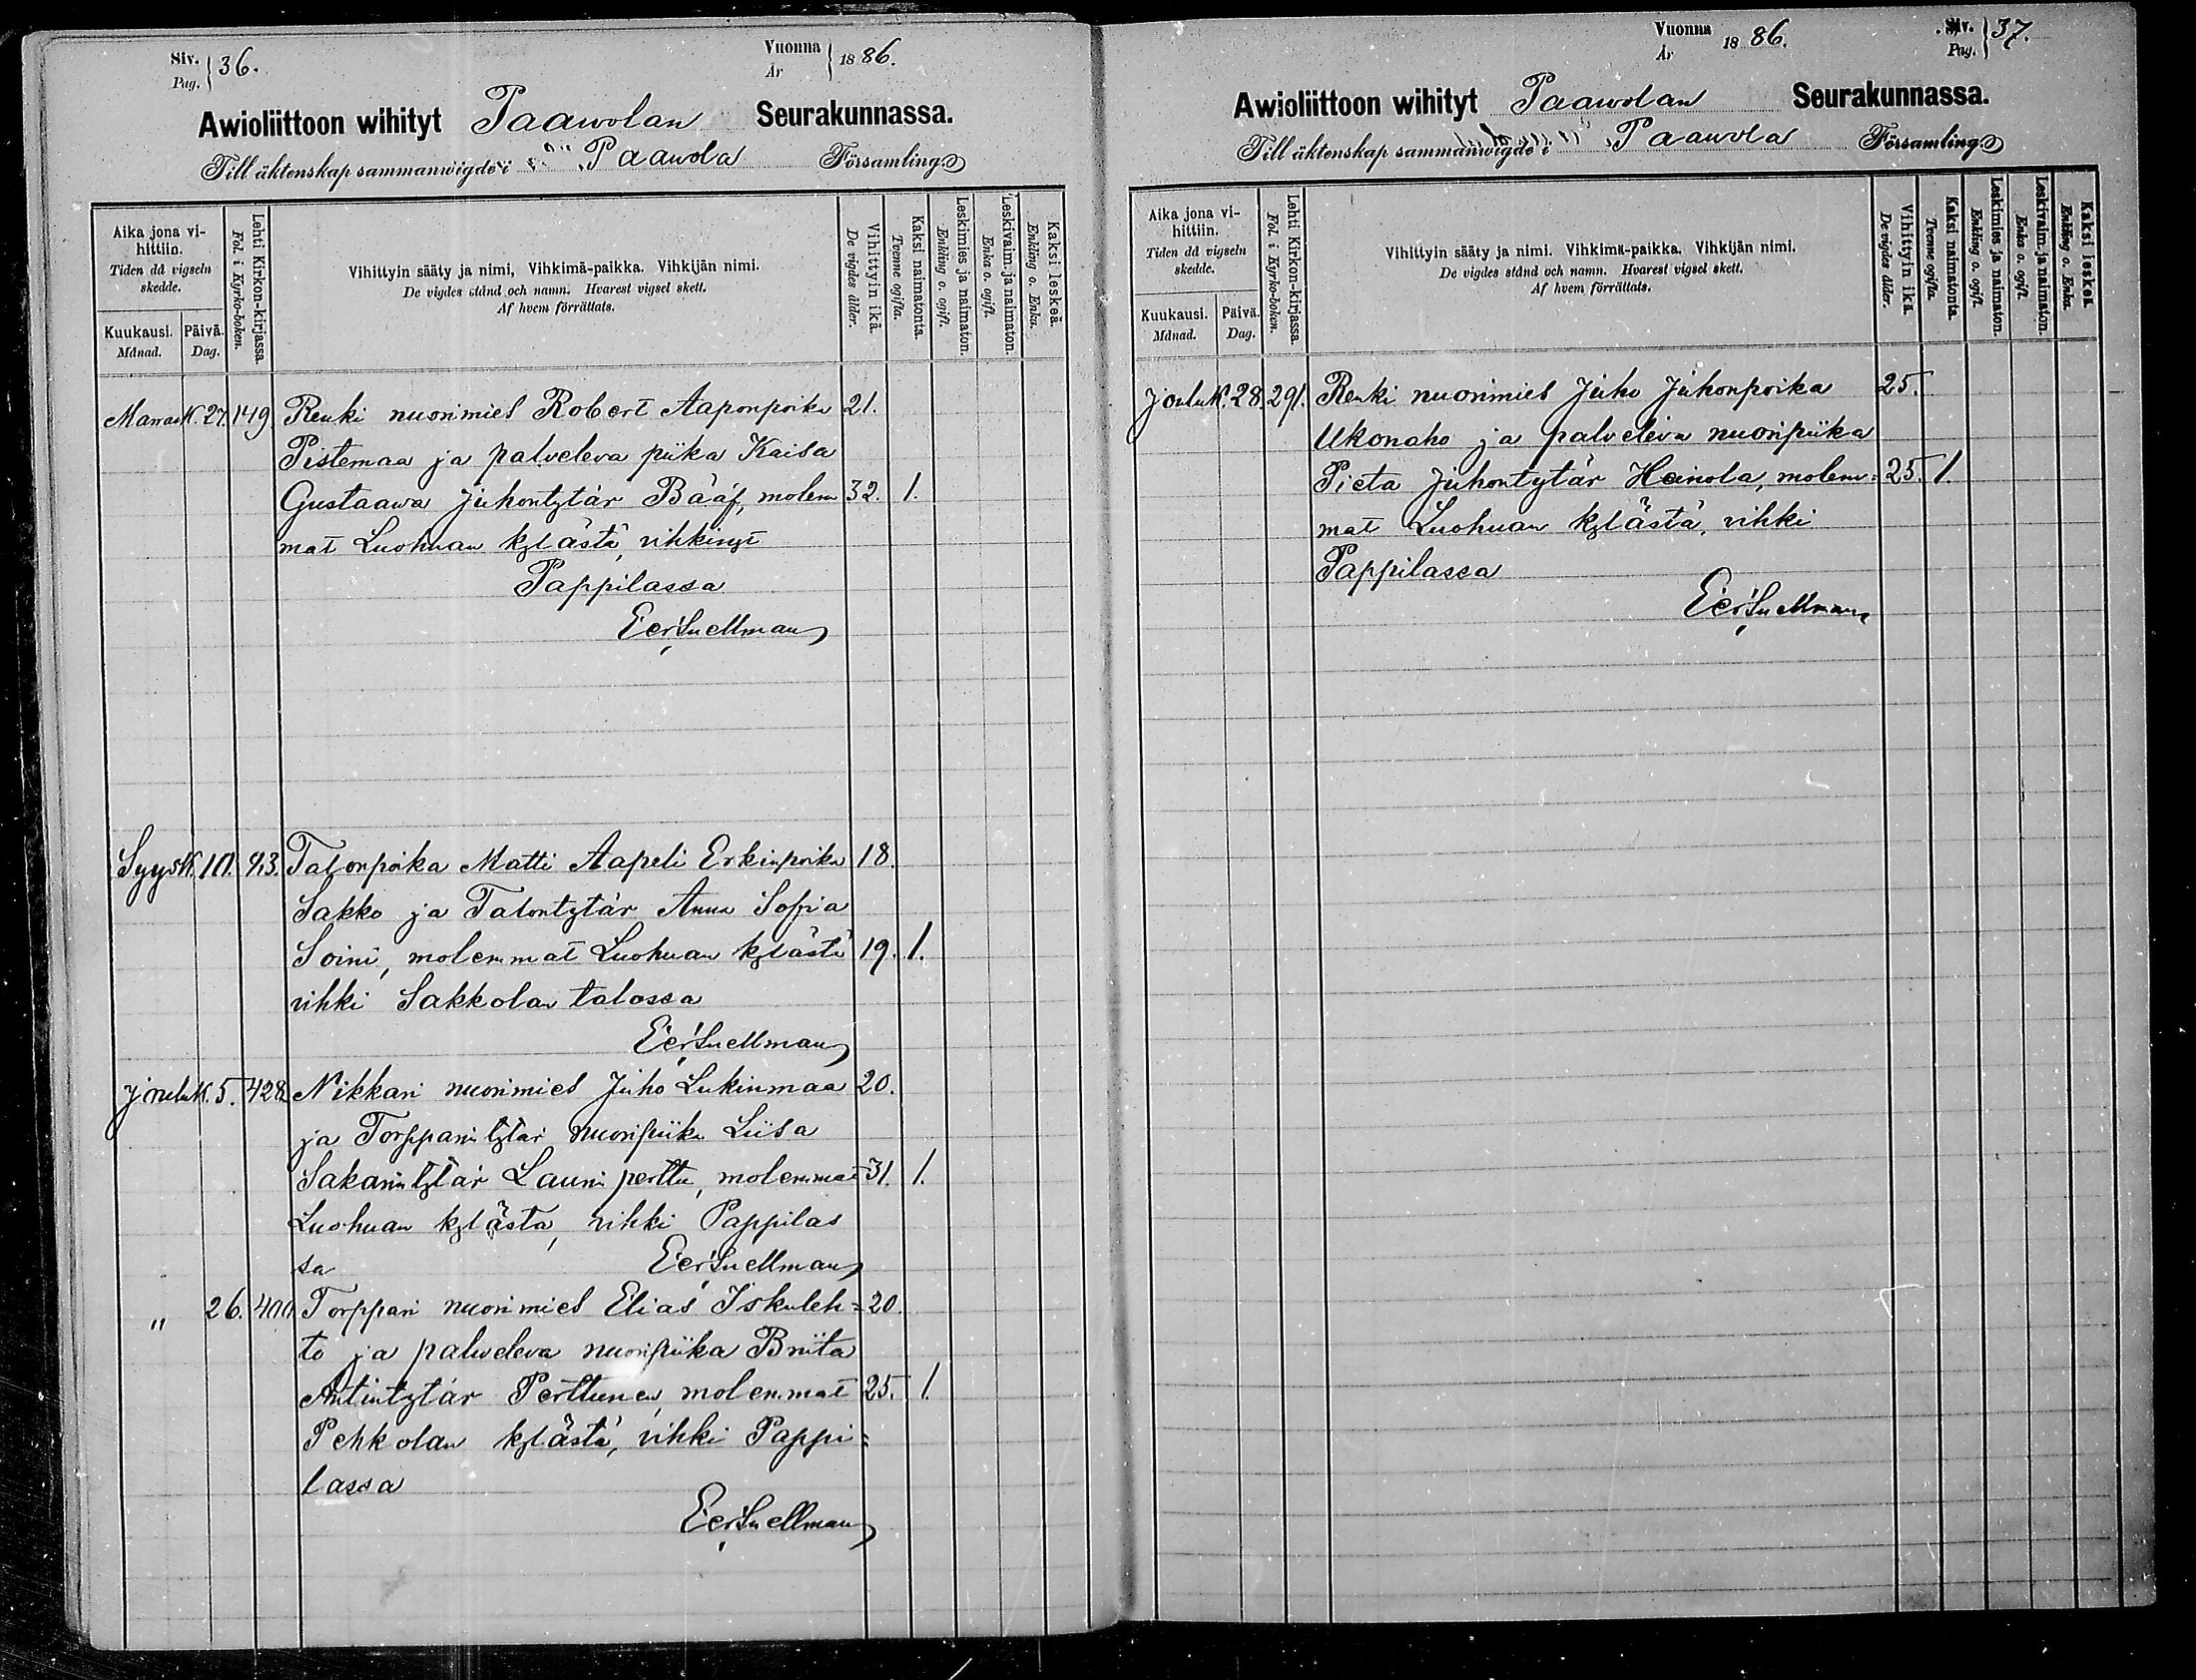 Siv. Pag. 36.
Vuonna År 1886.
Awioliittoon wihityt Paawolan Seurakunnassa.
Till äktenskap sammanwigde i Paavola Församling
Aika jona vihittiin.
Tiden då vigseln skedde.
Kuukausi. Månad.
Päivä. Dag.
Lehti Kirkon-kirjassa.
Fol. i Kyrko-boken.
Vihittyin sääty ja nimi, Vihkimä-paikka. Vihkijän nimi.
De vigdes stånd och namn. Hvarest vigsel skett.
Af hvem förrättats.
Vihittyin ikä.
De vigdes ålder.
Kaksi naimatonta.
Tvenne ogifta.
Leskimies ja naimaton.
Enkling o. ogift.
Leskivaim. ja naimaton.
Enka o. ogift.
Kaksi leskeä.
Enkling o. Enka.
Marrask. 27. 149 Renki nuorimies Robert Aaponpoika 21.
Pistemaa ja palveleva piika Kaisa
Gustaawa Juhontytär Bääf, molem 32. 1.
mat Luohuan kylästä, vihkinyt
Pappilassa
Eer. Snellman
Syysk. 10. 93. Talonpoika Matti Aapeli Erkinpoika 18.
Sakko ja Talontytär Anna Sofia
Soini, molemmat Luohuan kylästä 19. 1.
vihki Sakkolan talossa
Eer. Snellman
Jouluk. 5. 428. Nikkari nuorimies Juho Lukinmaa 20.
ja Torpparintytär nuoripiika Liisa
Sakarintytär Launi perttu, molemmat 31. 1.
Luohuan kylästä, vihki Pappilas
sa Eer. Snellman
" 26. 400. Torppari nuorimies Elias Iskuleh= 20.
to ja palveleva nuoripiika Briita
Antintytär Perttunen, molemmat 25. 1.
Pehkolan kylästä, vihki Pappi=
lassa
Eer. Snellman
Vuonna År 1886.
Siv. Pag. 37.
Awioliittoon wihityt Paawolan Seurakunnassa.
Till äktenskap sammanwigde i Paavola Församling
Aika jona vihittiin.
Tiden då vigseln skedde.
Kuukausi. Månad.
Päivä. Dag.
Lehti Kirkon-kirjassa.
Fol. i Kyrko-boken.
Vihittyin sääty ja nimi. Vihkimä-paikka. Vihkijän nimi.
De vigdes stånd och namn. Hvarest vigsel skett.
Af hvem förrättats.
Vihittyin ikä.
De vigdes ålder.
Kaksi naimatonta.
Tvenne ogifta.
Leskimies ja naimaton.
Enkling o. ogift.
Leskivaim. ja naimaton.
Enka o. ogift.
Kaksi leskeä.
Enkling o. Enka.
Jouluk. 28. 291. Renki nuorimies Juho Juhonpoika 25.
Ukonaho ja palveleva nuoripiika
Pieta Juhontytär Heinola, molem= 25. 1.
mat Luohuan kylästä, vihki
Pappilassa
Eer. Snellman